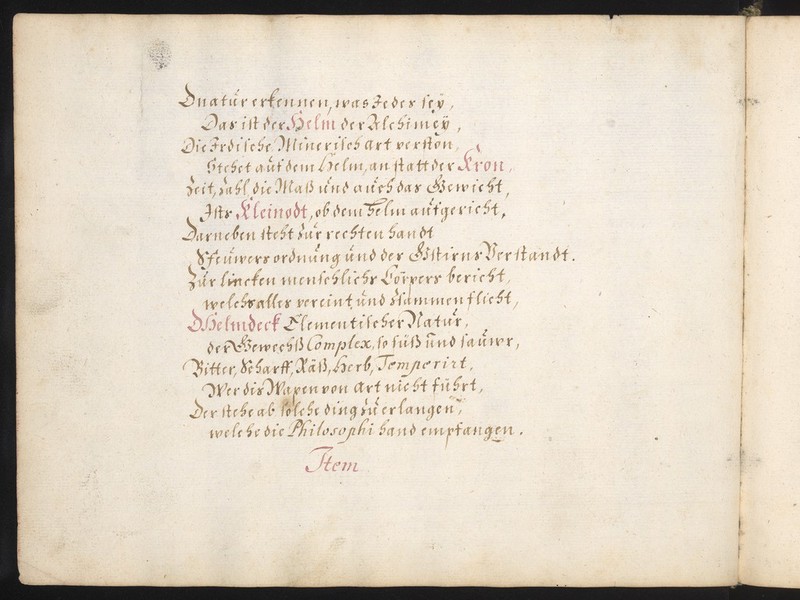 Dnatür erkennen, was Jedes seÿ,
Das ist der Helm der Alchimeÿ,
Die Jrdische, Minerisch art verston,
Stehet auf dem Helm, an statt der Kron,
Zeit, Zahl, die Maß ünd aüch das Gewicht,
Jsts Kleinodt, ob dem Helm aüfgericht,
Darneben steht Zür rechten handt
Sfeüwers ordnüng ünd der Gstirns Verstandt.
Zür lincken menschlichs Cörpers bericht,
welchs alles vereint, ünd Zsammen flicht,
DHelmdeck Elementischer Natür,
der Gewechß Complex, so süß ünd saüwr,
Bitter, Scharff, Räß, Herb, Temperirt,
Wer dis Wapen von art nicht führt,
Der stehe ab solche ding zü erlangen,
welche die Philosophi hand empfangen.
Jtem